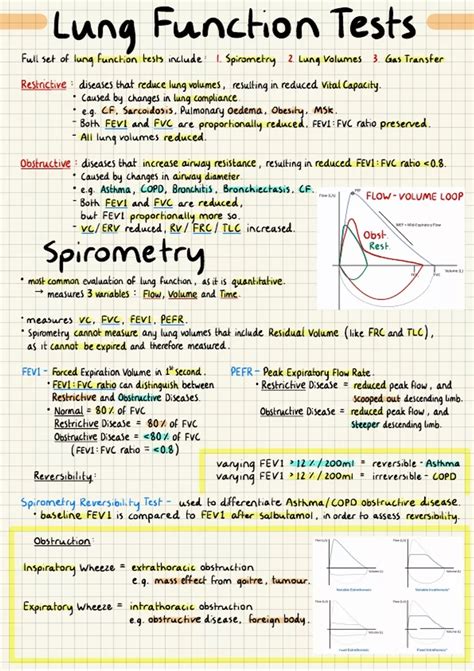 Lung Function Tests
Full set of lung function tests include : 1. Spirometry 2. Lung Volumes 3. Gas Transfer
Restrictive : diseases that reduce lung volumes , resulting in reduced Vital Capacity.
• Caused by changes in lung compliance
• e.g. CF, Sarcoidosis, Pulmonary Oedema, Obesity, MSk.
- Both FEV1 and FVC are proportionally reduced, FEV1:FVC ratio preserved.
- All lung volumes reduced.
Obstructive : diseases that increase airway resistance , resulting in reduced FEV1:FVC ratio <0.8.
• Caused by changes in airway diameter
• e.g. Asthma, COPD, Bronchitis, Bronchiectasis, CF.
- Both FEV1 and FVC are reduced,
but FEV1 proportionally more so.
- VC/ERV reduced, RV/FRC/TLC increased.
Flow (L/s)
PEF
FLOW-VOLUME LOOP
MEF = Mid-Expiratory Flow
Obst.
Rest.
Volume (L)
FVC
Spirometry
• most common evaluation of lung function, as it is quantitative.
→ measures 3 variables : Flow, Volume and Time.
• measures VC, FVC, FEV1, PEFR.
• Spirometry cannot measure any lung volumes that include Residual Volume (like FRC and TLC),
as it cannot be expired and therefore measured.
FEV1 - Forced Expiration Volume in 1st second.
• FEV1:FVC ratio can distinguish between
Restrictive and Obstructive Diseases.
• Normal = 80% of FVC
Restrictive Disease = 80% of FVC
Obstructive Disease = <80% of FVC
(FEV1:FVC ratio = <0.8)
PEFR - Peak Expiratory Flow Rate.
• Restrictive Disease = reduced peak flow, and
scooped out descending limb.
• Obstructive Disease = reduced peak flow, and
steeper descending limb.
Reversibility:
varying FEV1 >12%/200ml = reversible - Asthma
varying FEV1 >12%/200ml = irreversible - COPD
Spirometry Reversibility Test - used to differentiate Asthma/COPD obstructive disease.
• baseline FEV1 is compared to FEV1 after salbutamol, in order to assess reversibility.
Obstruction:
Inspiratory Wheeze = extrathoracic obstruction
e.g. mass effect from goitre, tumour.
Expiratory Wheeze = intrathoracic obstruction
e.g. obstructive disease, foreign body.
Flow (L/s)
Volume (L)
Variable Extrathoracic
Flow (L/s)
Volume (L)
Variable Intrathoracic
Flow (L/s)
Volume (L)
Flow (L/s)
Volume (L)